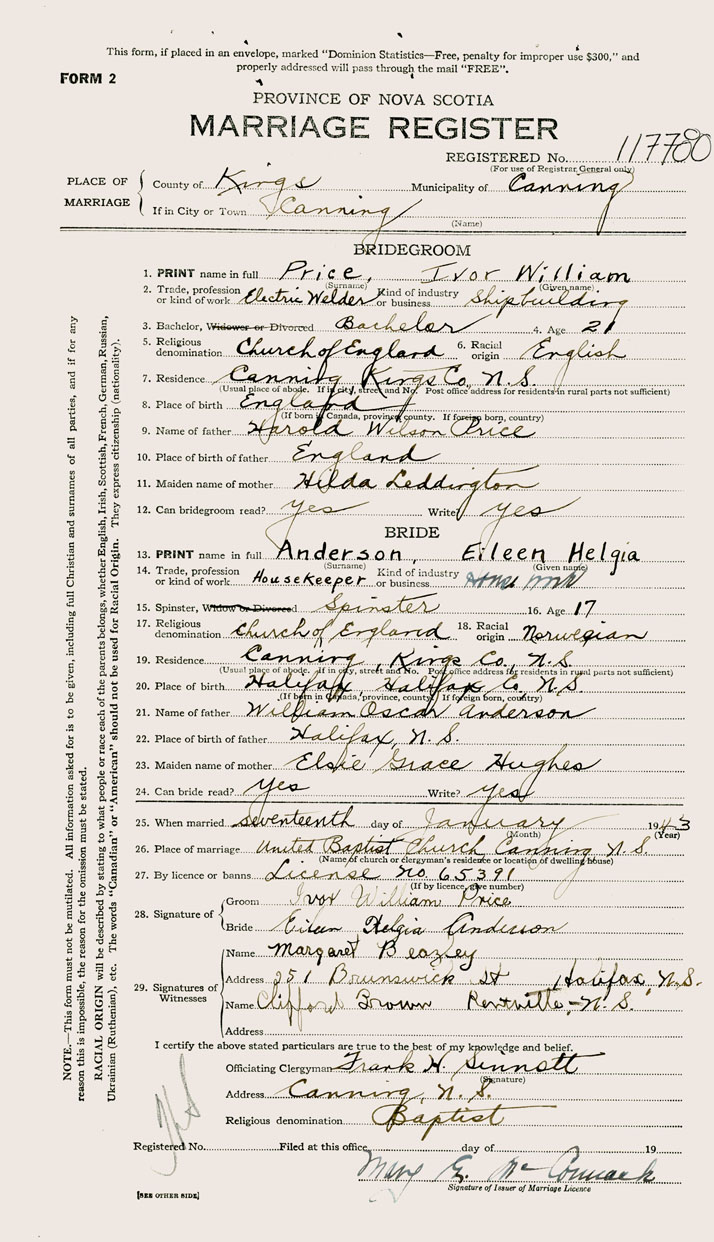 This form, if placed in an envelope, marked "Dominion Statistics—Free, penalty for improper use $300," and
properly addressed will pass through the mail "FREE".
FORM 2
PROVINCE OF NOVA SCOTIA
MARRIAGE REGISTER
REGISTERED No. 117780
(For use of Registrar General only)
PLACE OF MARRIAGE
County of Kings Municipality of Canning
If in City or Town Canning
(Name)
BRIDEGROOM
1. PRINT name in full Price, Ivor William
(Surname) (Given name)
2. Trade, profession or kind of work Electric Welder Kind of industry or business Shipbuilding
3. Bachelor, Widower or Divorced Bachelor 4. Age 21
5. Religious denomination Church of England 6. Racial origin English
7. Residence Canning Kings Co, N.S.
(Usual place of abode. If in city, street and No. Post office address for residents in rural parts not sufficient)
8. Place of birth England
(If born in Canada, province, county. If foreign born, country)
9. Name of father Harold Wilson Price
10. Place of birth of father England
11. Maiden name of mother Hilda Leddington
12. Can bridegroom read? yes Write? yes
BRIDE
13. PRINT name in full Anderson, Eileen Helgia
(Surname) (Given name)
14. Trade, profession or kind of work Housekeeper Kind of industry or business
15. Spinster, Widow or Divorced Spinster 16. Age 17
17. Religious denomination Church of England 18. Racial origin Norwegian
19. Residence Canning, Kings Co., N.S.
(Usual place of abode. If in city, street and No. Post office address for residents in rural parts not sufficient)
20. Place of birth Halifax, Halifax Co, N.S.
(If born in Canada, province, county. If foreign born, country)
21. Name of father William Oscar Anderson
22. Place of birth of father Halifax, N.S.
23. Maiden name of mother Elsie Grace Hughes
24. Can bride read? yes Write? yes
25. When married seventeenth day of January 1943
(Month) (Year)
26. Place of marriage United Baptist Church Canning N.S.
(Name of church or clergyman's residence or location of dwelling house)
27. By licence or banns License No. 65391
(If by licence, give number)
28. Signature of
Groom Ivor William Price
Bride Eileen Helgia Anderson
29. Signatures of Witnesses
Name Margaret Beazley
Address 251 Brunswick St Halifax, N.S.
Name Clifford Brown Kentville, N.S.
Address
I certify the above stated particulars are true to the best of my knowledge and belief.
Officiating Clergyman Frank H. Sinnott
(Signature)
Address Canning, N.S.
Religious denomination Baptist
Registered No. Filed at this office day of 19
Mary E. McCormack
Signature of Issuer of Marriage Licence
[SEE OTHER SIDE]
NOTE.—This form must not be mutilated. All information asked for is to be given, including full Christian and surnames of all parties, and if for any
reason this is impossible, the reason for the omission must be stated.
RACIAL ORIGIN will be described by stating to what people or race each of the parents belongs, whether English, Irish, Scottish, French, German, Russian,
Ukrainian (Ruthenian), etc. The words "Canadian" or "American" should not be used for Racial Origin. They express citizenship (nationality).